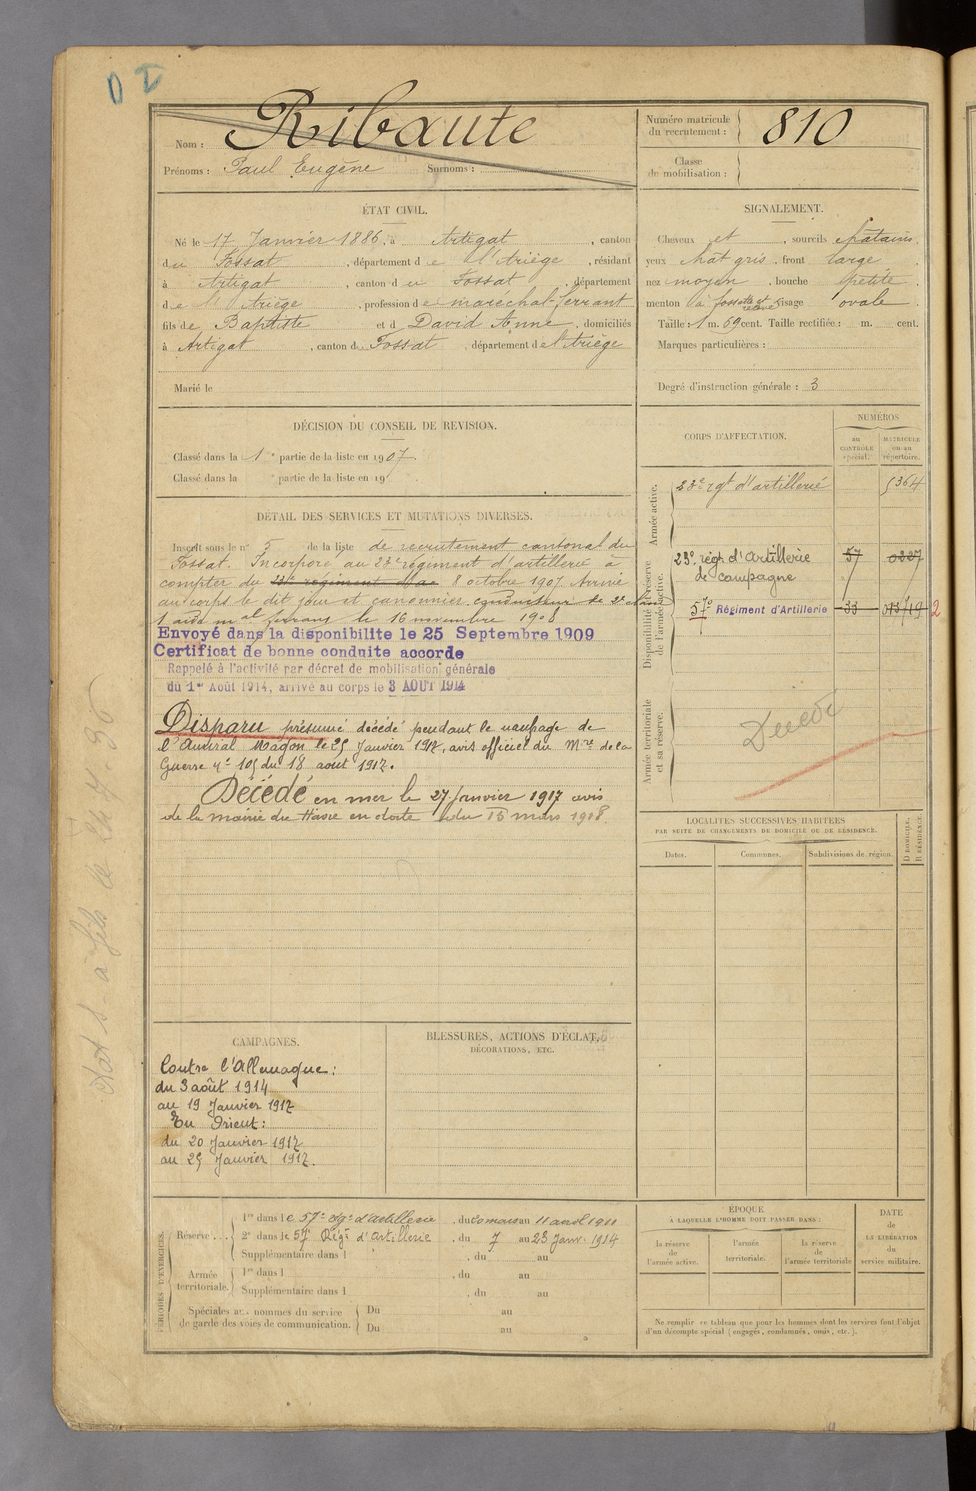 D I
Nom : Ribaute
Prénoms : Paul Eugène Surnoms :
Numéro matricule du recrutement : 810
Classe de mobilisation :
ÉTAT CIVIL.
Né le 17 Janvier 1886, à Artigat, canton
du Fossat, département de l'Ariège, résidant
à Artigat, canton du Fossat, département
de l'Ariège, profession de maréchal-ferrant
fils de Baptiste et d David Anne, domiciliés
à Artigat, canton du Fossat, département de l'Ariège
Marié le
SIGNALEMENT.
Cheveux et , sourcils châtains,
yeux chât gris, front large
nez moyen, bouche petite
menton à fossette et relevé visage ovale
Taille : 1 m. 69 cent. Taille rectifiée : m. cent.
Marques particulières :
Degré d'instruction générale : 3
DÉCISION DU CONSEIL DE REVISION.
Classé dans la 1e partie de la liste en 1907.
Classé dans la e partie de la liste en 19
DÉTAIL DES SERVICES ET MUTATIONS DIVERSES.
Inscrit sous le n° 5 de la liste de recrutement cantonal du
Fossat. Incorporé au 23e régiment d'artillerie à
compter du 8 octobre 1907. Arrivé
au corps le dit jour et canonnier conducteur de 2e classe
1 aide mal ferrant le 16 novembre 1908
Envoyé dans la disponibilite le 25 Septembre 1909
Certificat de bonne conduite accorde
Rappelé à l'activité par décret de mobilisation générale
du 1er Août 1914, arrivé au corps le 3 AOUT 1914
Disparu présumé décédé pendant le naufrage de
l'Amiral Magon le 25 Janvier 1917, avis officiel du Mre de la
Guerre N° 105 du 18 aout 1917.
Décédé en mer le 27 Janvier 1917 avis
de la mairie du Havre en date du 15 mars 1918.
CORPS D'AFFECTATION.
NUMÉROS
AU CONTRÔLE spécial.
MATRICULE ou au répertoire.
Armée active.
23e rgt d'artillerie 5364
Disponibilité et réserve de l'armée active.
23e régt d'Artillerie de campagne 57 0207
57e Régiment d'Artillerie 33 2
Armée territoriale et sa réserve.
Décédé
LOCALITÉS SUCCESSIVES HABITÉES
PAR SUITE DE CHANGEMENTS DE DOMICILE OU DE RÉSIDENCE.
Dates. Communes. Subdivisions de région. D DOMICILE. R RÉSIDENCE.
CAMPAGNES.
Contre l'Allemagne :
du 3 août 1914
au 19 Janvier 1917
En Orient :
du 20 Janvier 1917
au 25 Janvier 1917.
BLESSURES, ACTIONS D'ÉCLAT,
DÉCORATIONS, ETC.
PÉRIODES D'EXERCICES.
Réserve ...
1re dans le 57e rgt d'artillerie, du 20 mars au 11 avril 1911
2e dans le 57e Régt d'Artillerie, du 7 au 23 Janv. 1914
Supplémentaire dans l , du au
Armée territoriale.
1re dans l , du au
Supplémentaire dans l , du au
Spéciales aux hommes du service de garde des voies de communication.
Du au
Du au
ÉPOQUE
À LAQUELLE L'HOMME DOIT PASSER DANS :
la réserve de l'armée active.
l'armée territoriale.
la réserve de l'armée territoriale
DATE de LA LIBÉRATION du service militaire.
Ne remplir ce tableau que pour les hommes dont les services font l'objet
d'un décompte spécial (engagés, condamnés, omis, etc.).